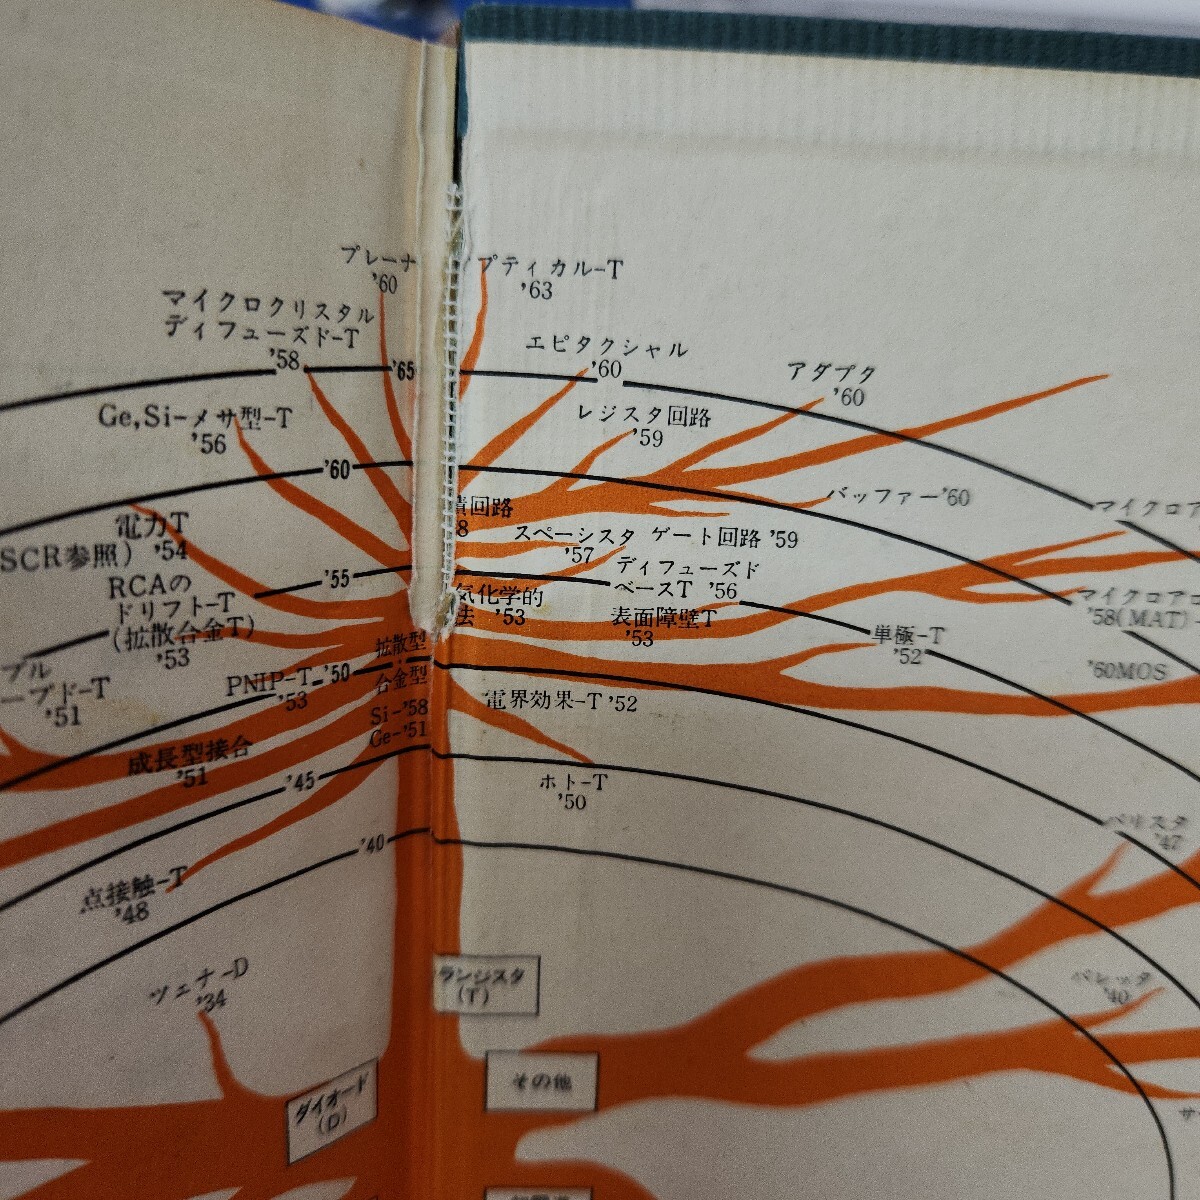 プレーナ
'60
プティカル-T
'63
マイクロクリスタル
ディフューズド-T
'58
エピタクシャル
'60
'65
アダプタ
'60
Ge,Si-メサ型-T
'56
レジスタ回路
'59
'60
バッファー'60
マイクロア
回路
8
電力T
SCR参照) '54
スペーシスタ
'57
ゲート回路 '59
'55
ディフューズド
ベースT '56
RCAの
ドリフト-T
(拡散合金T)
'53
気化学的
法 '53
表面障壁T
'53
マイクロア
'58(MAT)
単極-T
'52
'60MOS
拡散型
合金型
'50
ブル
ープド-T
'51
PNIP-T
'53
Si-'58
Ge-'51
電界効果-T '52
成長型接合
'51
'45
ホト-T
'50
'40
バリスタ
'47
点接触-T
'48
ツェナ-D
'34
ランジスタ
(T)
バレッタ
'40
その他
ダイオード
(D)
サ